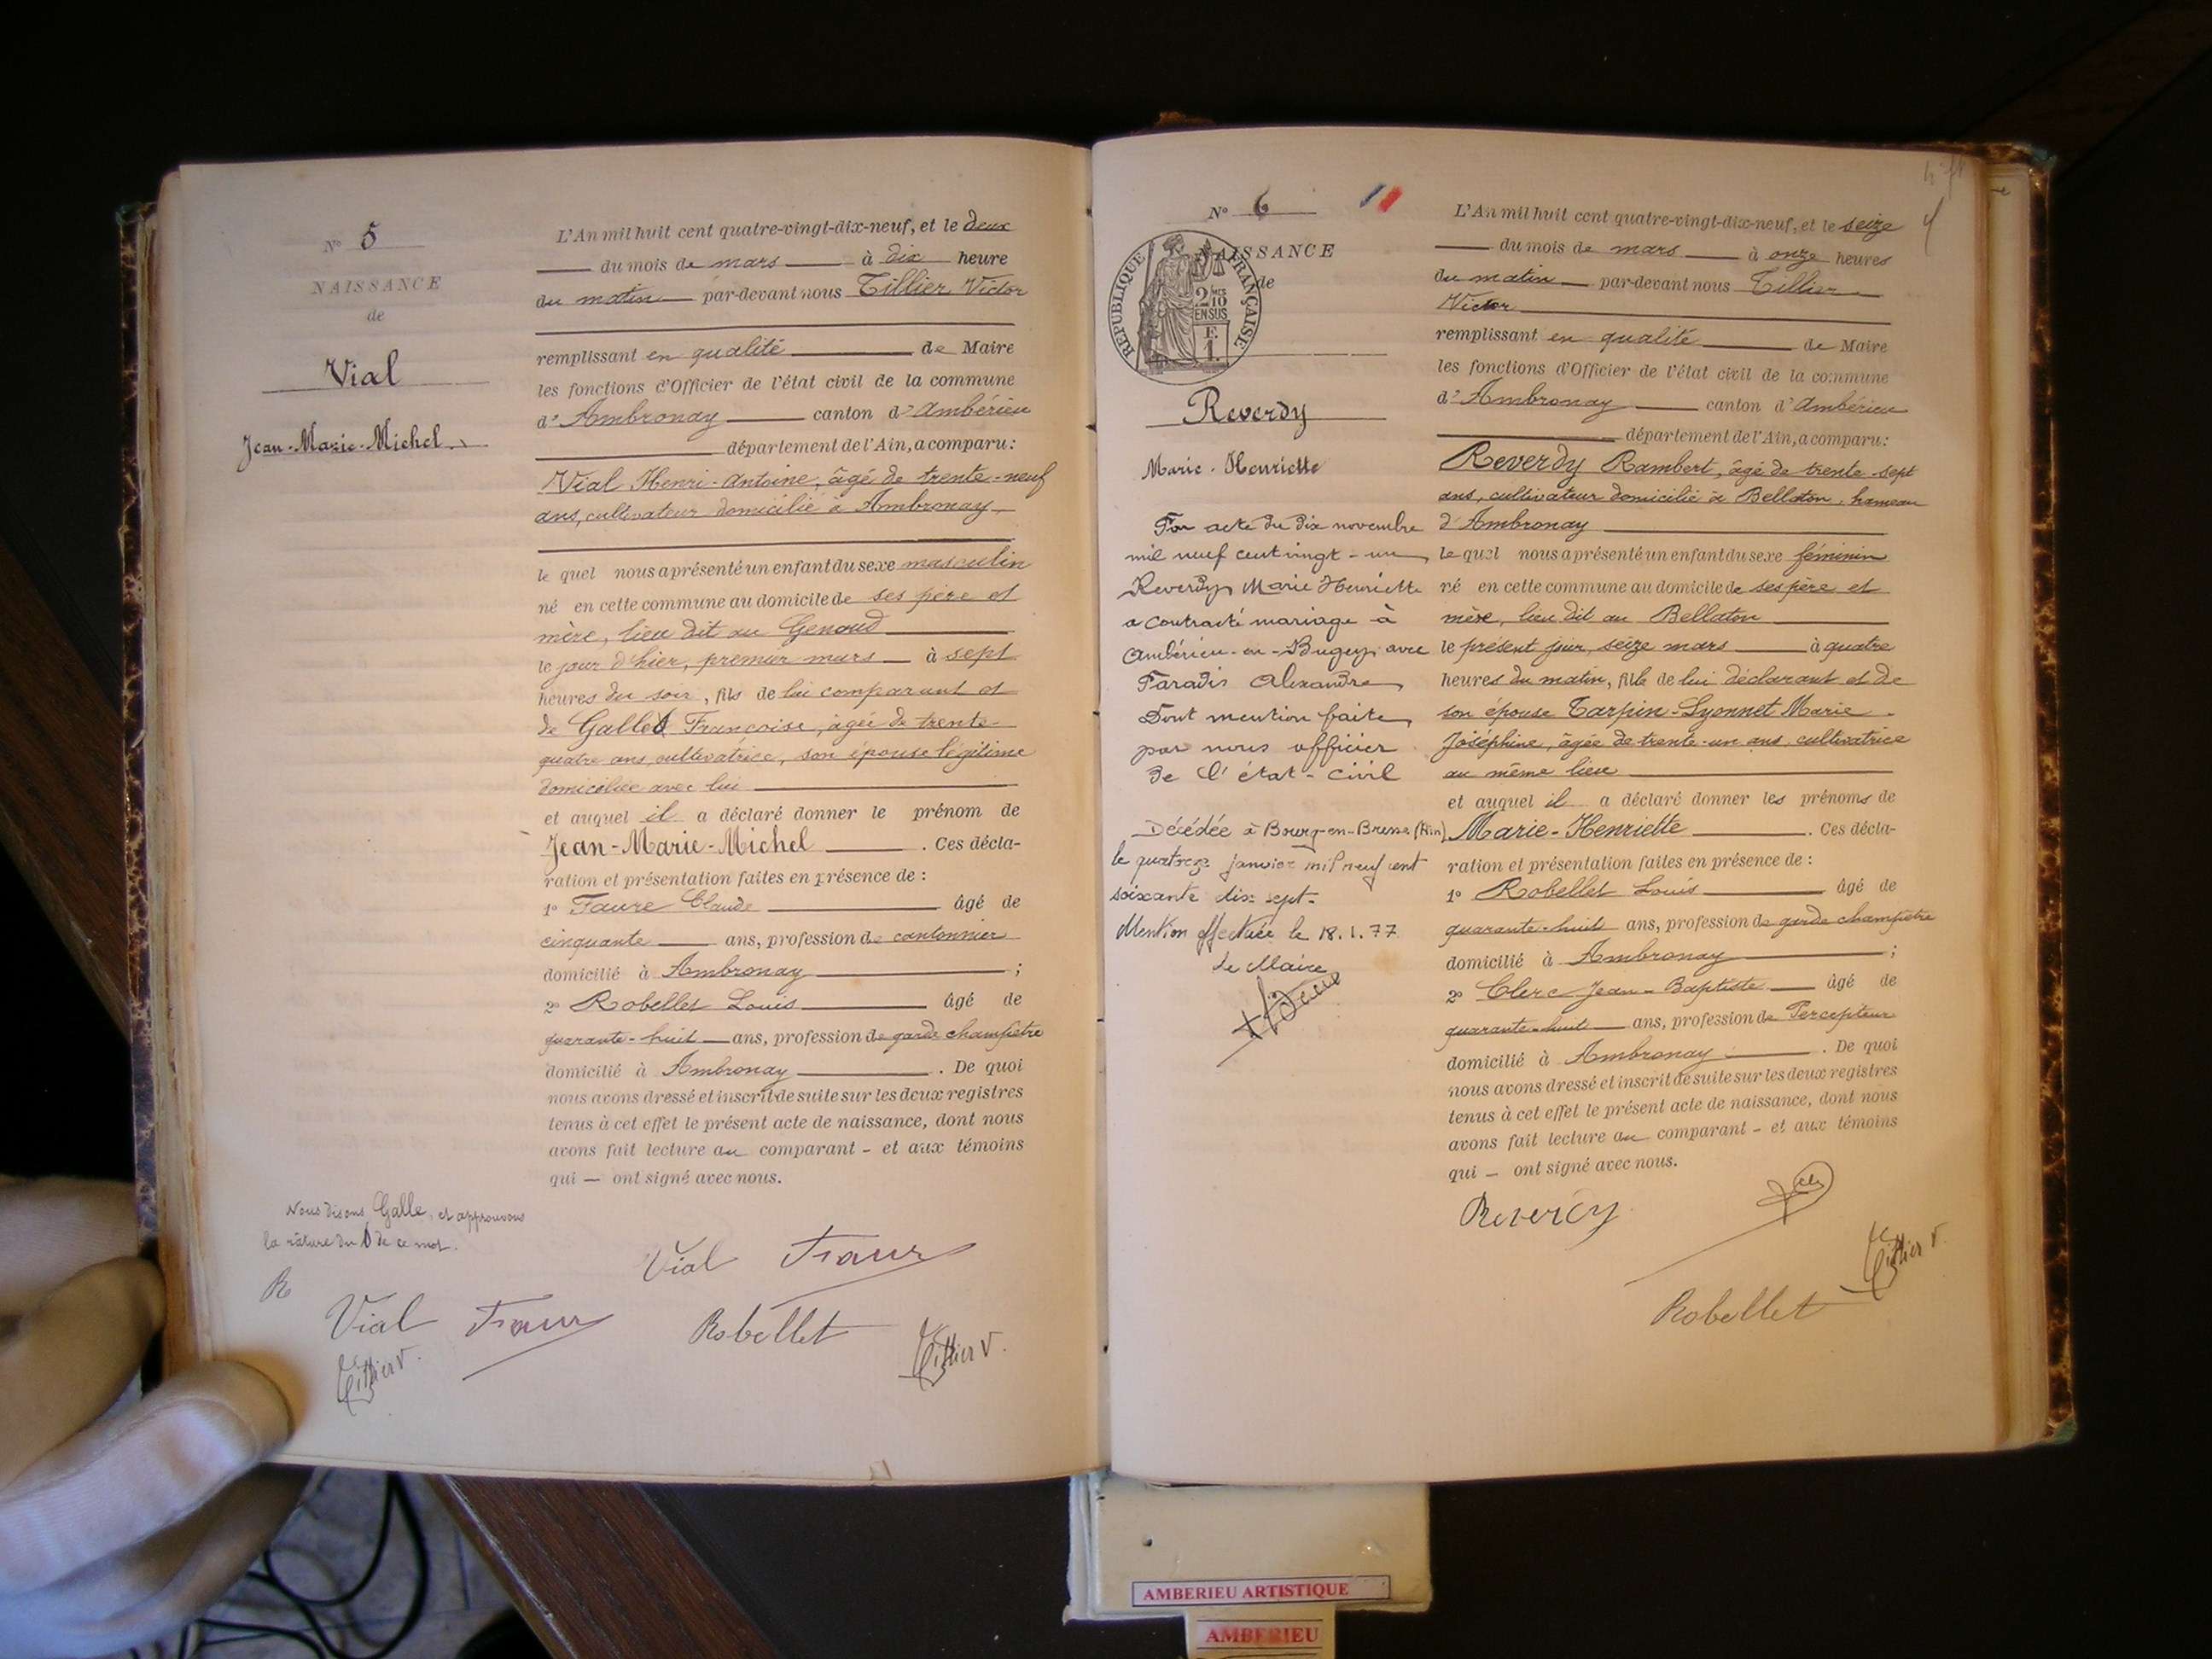 N° 5
NAISSANCE
de
Vial
Jean-Marie-Michel
L'An mil huit cent quatre-vingt-dix-neuf, et le deux
du mois de mars à dix heure
du matin par-devant nous Tillier Victor
remplissant en qualité de Maire
les fonctions d'Officier de l'état civil de la commune
d'Ambronay canton d'Ambérieu
département de l'Ain, a comparu:
Vial Henri-Antoine, âgé de trente-neuf
ans, cultivateur domicilié à Ambronay
le quel nous a présenté un enfant du sexe masculin
né en cette commune au domicile de ses père et
mère, lieu dit au Genoud
le jour d'hier, premier mars à sept
heures du soir, fils de lui comparant et
de Gallet Françoise, âgée de trente-
quatre ans, cultivatrice, son épouse légitime
domiciliée avec lui
et auquel il a déclaré donner le prénom de
Jean-Marie-Michel . Ces décla-
ration et présentation faites en présence de :
1° Faure Claude âgé de
cinquante ans, profession de cantonnier
domicilié à Ambronay ;
2° Robellet Louis âgé de
quarante-huit ans, profession de garde champêtre
domicilié à Ambronay . De quoi
nous avons dressé et inscrit de suite sur les deux registres
tenus à cet effet le présent acte de naissance, dont nous
avons fait lecture au comparant - et aux témoins
qui — ont signé avec nous.
Nous disons Galle, et approuvons
la râture du t de ce mot.
R
Vial Faure
Vial Faure
Robellet
Tillier V.
Tillier V.
N° 6
NAISSANCE
de
REPUBLIQUE FRANÇAISE
2/10
EN SUS
F.
1.
Reverdy
Marie-Henriette
Par acte du dix novembre
mil neuf cent vingt-un
Reverdy Marie Henriette
a contracté mariage à
Ambérieu-en-Bugey avec
Paradis Alexandre
Dont mention faite
par nous officier
de l'état-civil
Décédée à Bourg-en-Bresse (Ain)
le quatorze janvier mil neuf cent
soixante dix sept.
Mention effectuée le 18.1.77
Le Maire
4
L'An mil huit cent quatre-vingt-dix-neuf, et le seize
du mois de mars à onze heures
du matin par-devant nous Tillier
Victor
remplissant en qualité de Maire
les fonctions d'Officier de l'état civil de la commune
d'Ambronay canton d'Ambérieu
département de l'Ain, a comparu:
Reverdy Rambert, âgé de trente-sept
ans, cultivateur domicilié à Bellaton, hameau
d'Ambronay
le quel nous a présenté un enfant du sexe féminin
né en cette commune au domicile de ses père et
mère, lieu dit au Bellaton
le présent jour, seize mars à quatre
heures du matin, fille de lui déclarant et de
son épouse Tarpin-Lyonnet Marie
Joséphine, âgée de trente-un ans, cultivatrice
au même lieu
et auquel il a déclaré donner les prénoms de
Marie-Henriette . Ces décla-
ration et présentation faites en présence de :
1° Robellet Louis âgé de
quarante-huit ans, profession de garde champêtre
domicilié à Ambronay ;
2° Clerc Jean-Baptiste âgé de
quarante-huit ans, profession de Percepteur
domicilié à Ambronay . De quoi
nous avons dressé et inscrit de suite sur les deux registres
tenus à cet effet le présent acte de naissance, dont nous
avons fait lecture au comparant - et aux témoins
qui — ont signé avec nous.
Reverdy
Tillier V.
Robellet
AMBERIEU ARTISTIQUE
AMBERIEU